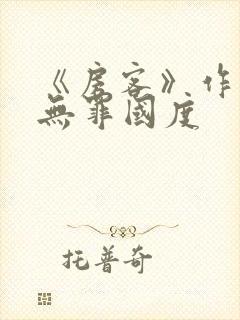 《房客》作
無罪國度
托普奇